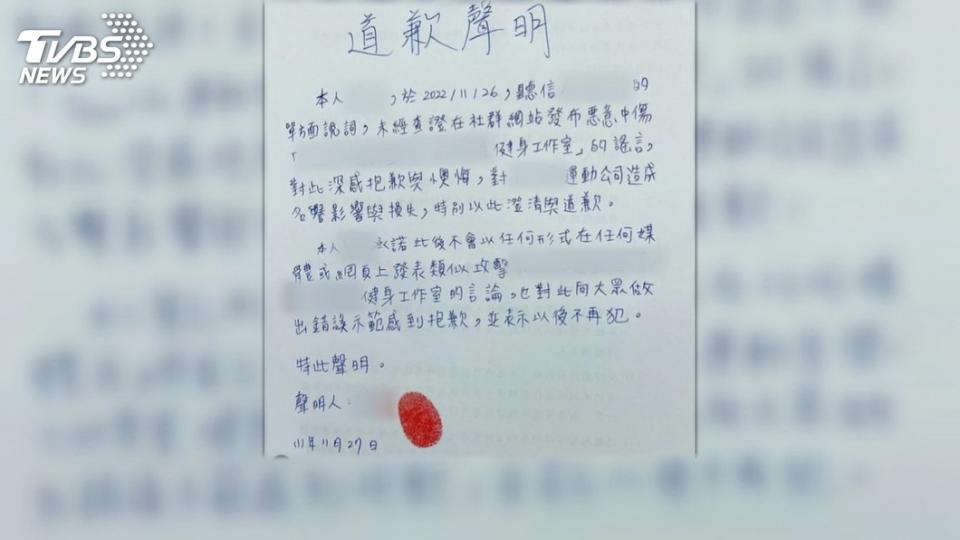 TVBS
NEWS
道歉聲明
本人 ,於2022/11/26,聽信 的
單方面說詞,未經查證在社群網站發布惡意中傷
「 健身工作室」的謠言,
對此深感抱歉與懊悔,對 運動公司造成
名譽影響與損失,特別以此澄清與道歉。
本人 承諾此後不會以任何形式在任何媒
體或網頁上發表類似攻擊
健身工作室的言論,也對此向大眾做
出錯誤示範感到抱歉,並表示以後不再犯。
特此聲明。
聲明人:
111年11月27日